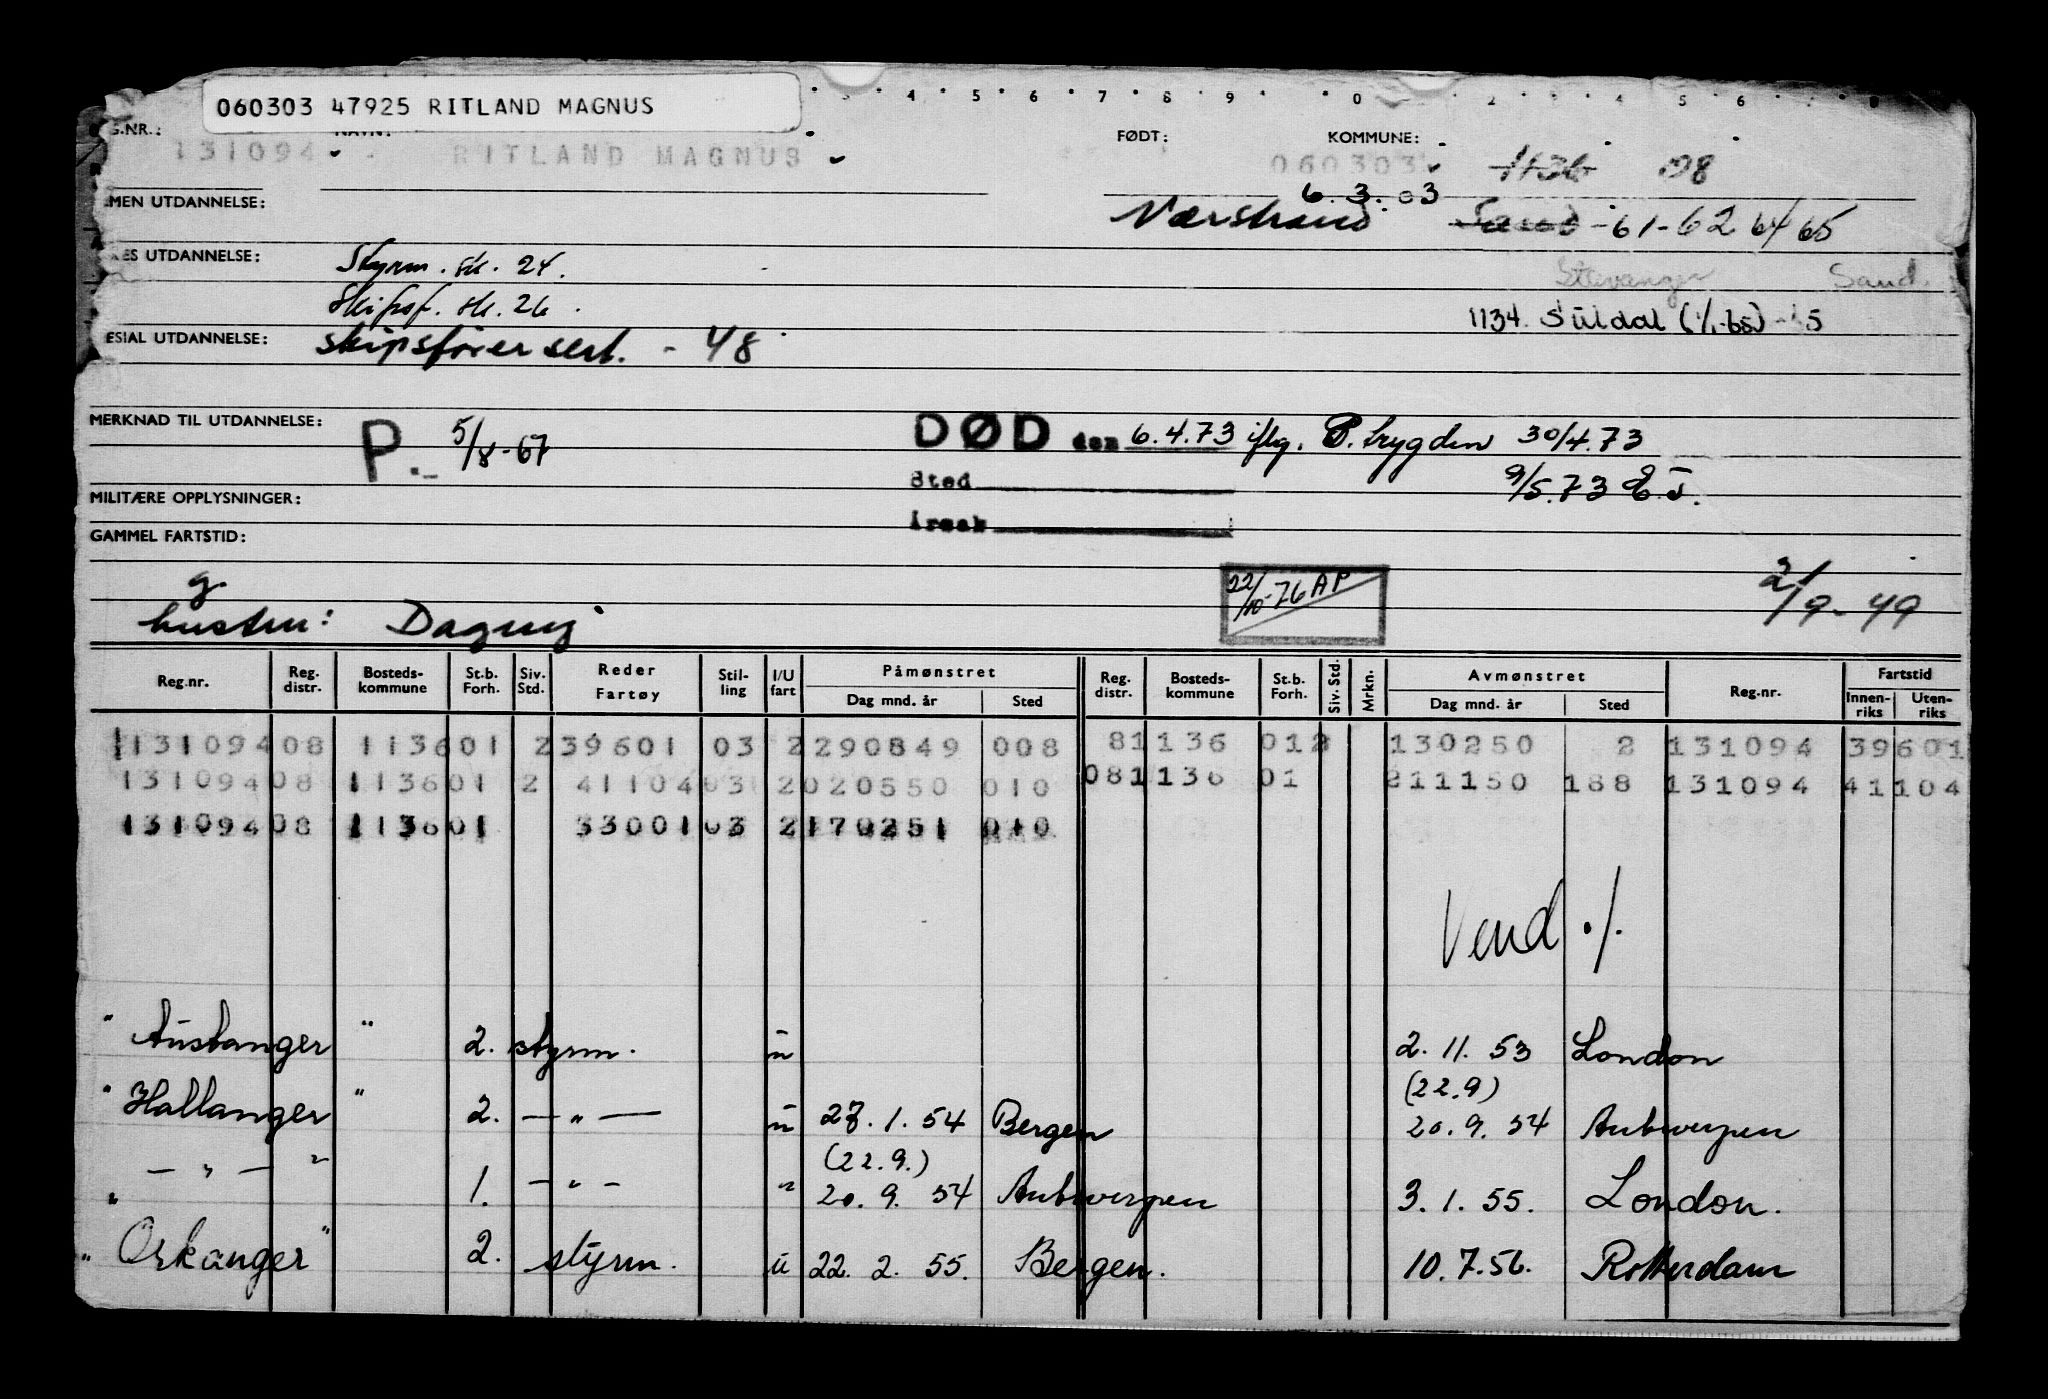 060303 47925 RITLAND MAGNUS
4 5 6 7 8 9 0 2 3 4 5 6
G.NR.: NAVN: FØDT: KOMMUNE:
131094 RITLAND MAGNUS 060303 1136 08
6.3.03
MEN UTDANNELSE: Nærstrand Sand -61-62 64 65
Stavanger Sand.
RES UTDANNELSE: Styrm. sk. 24.
Skipsf. sk. 26.
1134. Suldal (1/1-65)
ESIAL UTDANNELSE: skipsfører sert. - 48
MERKNAD TIL UTDANNELSE: P. 5/8-67
DØD den 6.4.73 iflg. P. trygden 30/4.73
Sted 9/5.73
MILITÆRE OPPLYSNINGER:
Årsak
GAMMEL FARTSTID:
g.
22/10-76 AP
/9-49
hustru: Dagny
Reg.nr. Reg. distr. Bosteds-kommune St.b. Forh. Siv. Std. Reder Fartøy Stil-ling I/U fart Påmønstret Dag mnd. år Sted Reg. distr. Bosteds-kommune St.b. Forh. Siv. Std. Mrkn. Avmønstret Dag mnd. år Sted Reg.nr. Fartstid Innen-riks Uten-riks
131094 08 1136 01 2 39601 03 2 290849 008 81 136 012 130250 2 131094 39601
131094 08 1136 01 2 41104 03 2 020550 010 08 1136 01 211150 188 131094 41104
131094 08 1136 01 33001 03 2 170251 010
Vend ./.
" Austanger " 2. styrm. u 2.11.53 London
(22.9)
" Hallanger " 2. — " — u 27.1.54 Bergen 20.9.54 Antwerpen
(22.9.)
" — " — " 1. — " — " 20.9.54 Antwerpen 3.1.55. London.
" Orkanger " 2. styrm. u 22.2.55. Bergen. 10.7.56. Rotterdam